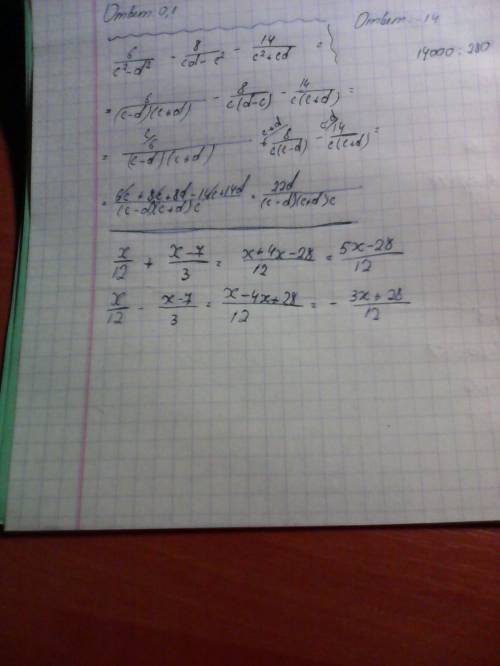 Ответ: 0,1
Ответ: -14
14000 : 280
6/(c²-d²) - 8/(cd-c²) - 14/(c²+cd) =
= 6/((c-d)(c+d)) - 8/(c(d-c)) - 14/(c(c+d)) =
= 6/((c-d)(c+d)) 8/(c(c-d)) - 14/(c(c+d)) =
= 6c + 8c + 8d - 14c + 14d/((c-d)(c+d)c) = 22d/((c-d)(c+d)c)
x/12 + (x-7)/3 = (x+4x-28)/12 = (5x-28)/12
x/12 - (x-7)/3 = (x-4x+28)/12 = - (3x+28)/12